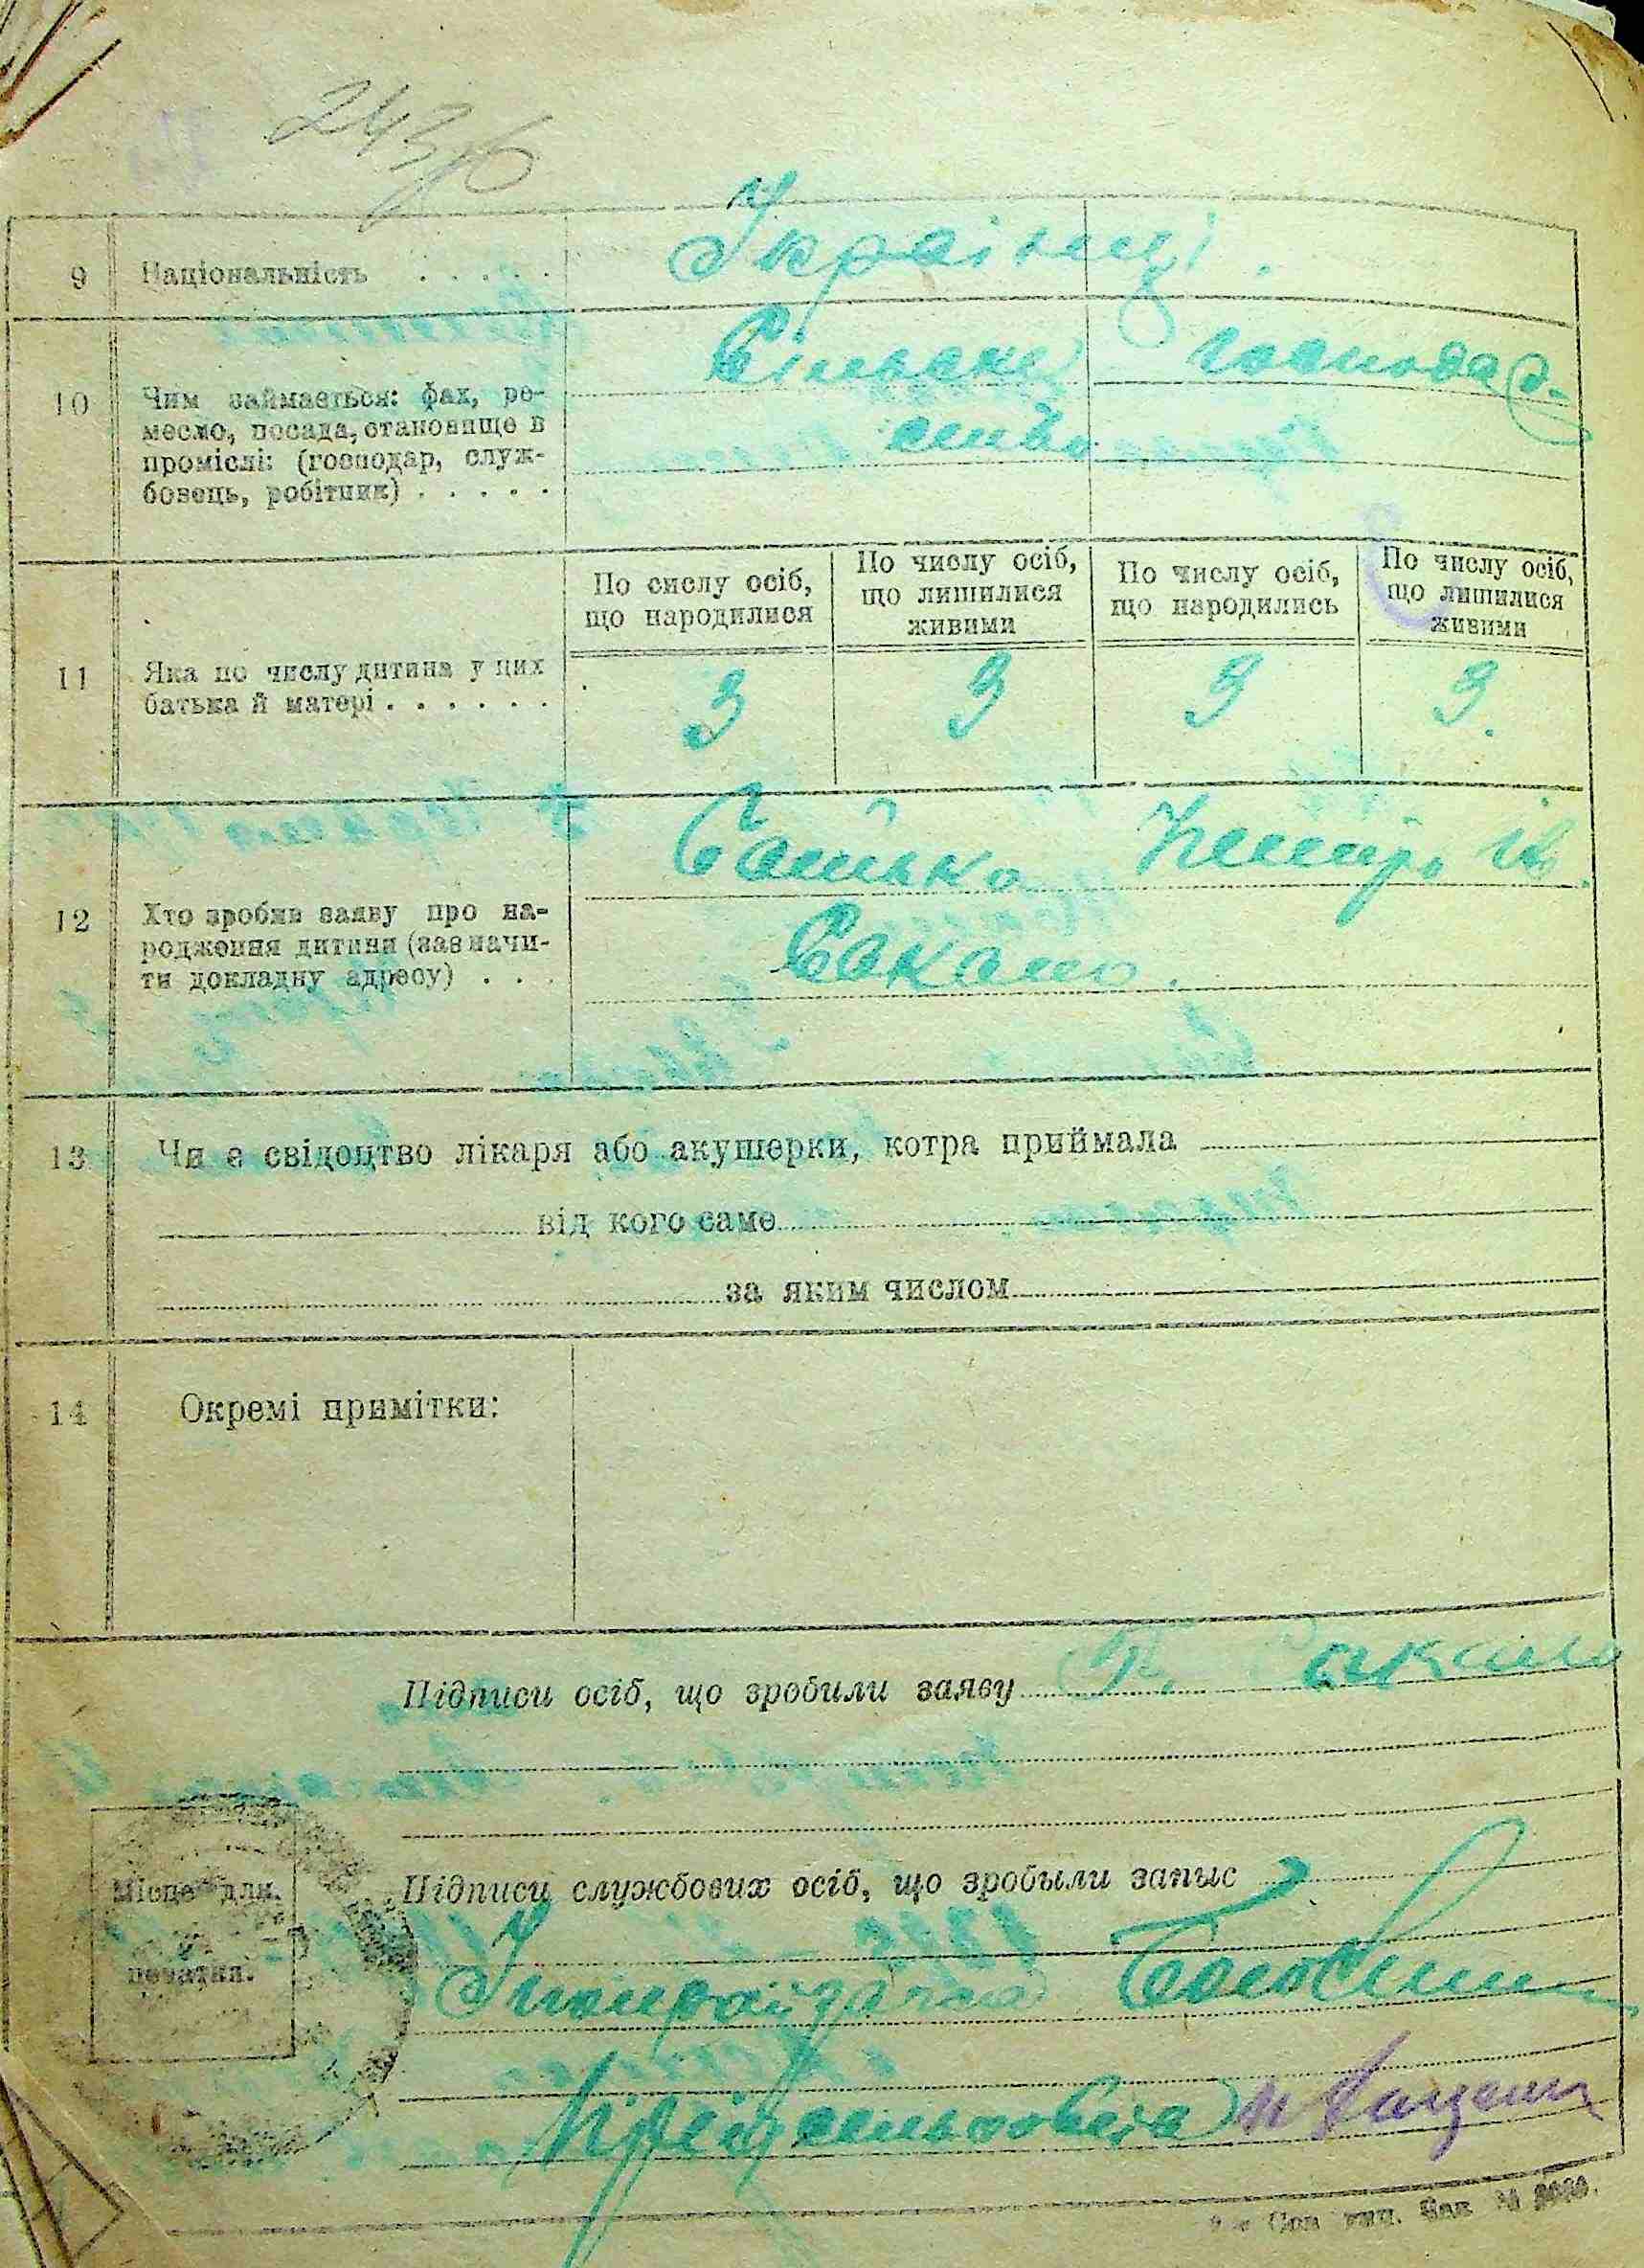 243/6
9 Національність . . . . .
Українці.
10 Чим займається: фах, ре-
месло, посада, становище в
промислі: (господар, служ-
бовець, робітник) . . . . .
Сільске господар-
ство
По сислу осіб,
що народилися
По числу осіб,
що лишилися
живими
По числу осіб,
що народились
По числу осіб,
що лишилися
живими
11 Яка по числу дитина у цих
батька й матері . . . . . .
3 3 3 3.
12 Хто зробив заяву про на-
родження дитини (зазначи-
ти докладну адресу) . . .
Батько Петро Ів.
Сакало.
13 Чи є свідоцтво лікаря або акушерки, котра приймала
від кого саме
за яким числом
14 Окремі примітки:
Підписи осіб, що зробили заяву П. Сакало
Місце для
печатки.
Підписи службових осіб, що зробыли запыс